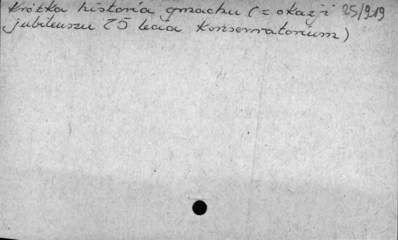 Krótka historia gmachu (z okazji 25/919
jubileuszu 25 lecia Konserwatorium)